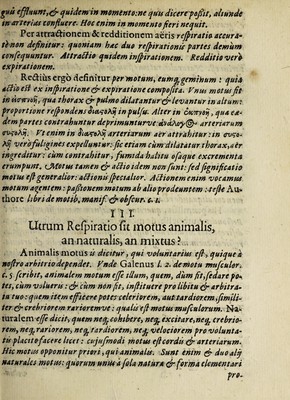 guis effluunt, & quidem in momento: ne quis dicere possit, aliunde
in arterias confluere. Hoc enim in momento fieri nequit.
Per attractionem & redditionem aëris respiratio accura-
tè non definitur: quoniam hæc duo respirationis partes demùm
consequuntur. Attractio quidem inspirationem. Redditio verò
expirationem.
Rectiùs ergò definitur per motum, eumq; geminum: quia
actio est ex inspiratione & expiratione composita. Vnus motus sit
in εἰσπνοῇ, qua thorax & pulmo dilatantur & levantur in altum:
proportione respondens διαστολῇ in pulsu. Alter in ἐκπνοῇ, qua ea-
dem partes contrahuntur deprimunturve: ἀνάλογον arteriarum
συστολῇ: Vt enim in διαστολῇ arteriarum aër attrahitur: in συσο-
λῇ verò fuligines expelluntur: sic etiam cùm dilatatur thorax, aër
ingreditur: cùm contrahitur, fumida halitu osaque excrementa
erumpunt. Motus tamen & actio idem non sunt: sed significatio
motus est generalior: actionis specialior. Actionem enim vocamus
motum agentem: passionem motum ab alio prodeuntem: teste Au-
thore libri de motib. manif. & obscur. c. 1.
III.
Utrum Respiratio sit motus animalis,
an naturalis, an mixtus?
Animalis motus is dicitur, qui voluntarius est, quique à
nostro arbitrio dependet. Vnde Galenus l. 2. de motu musculor.
c. 5 scribit, animalem motum esse illum, quem, dùm fit, sedare po-
tes, cùm volueris: & cùm non fit, instituere pro libitu & arbitra-
tu tuo: quem item efficere potes celeriorem, aut tardiorem, simili-
ter & crebriorem rarioremve: qualis est motus musculorum. Na-
turalem esse dicit, quem neq; cohibere, neq; excitare, neq; crebrio-
rem, neq; rariorem, neq; tardiorem, neq; velociorem pro volunta-
tis placito facere licet: cujusmodi motus est cordis & arteriarum.
Hic motus opponitur priori, qui animalis. Sunt enim & duo alij
naturales motus: quorum unus à sola natura & forma elementari
pro-